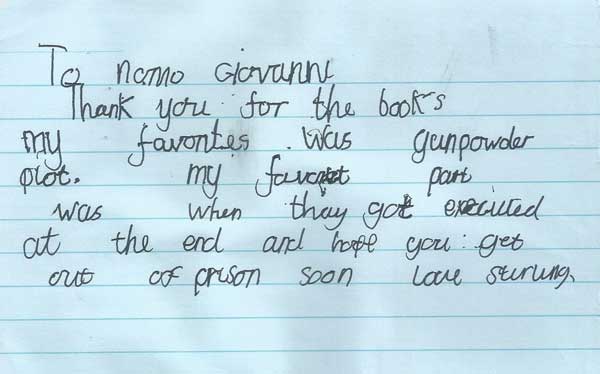 To nonno Giovanni
Thank you for the books
my favorites was gunpowder
plot. my favoret part
was when thay got executed
at the end and hope you get
out of prison soon Love sterling.